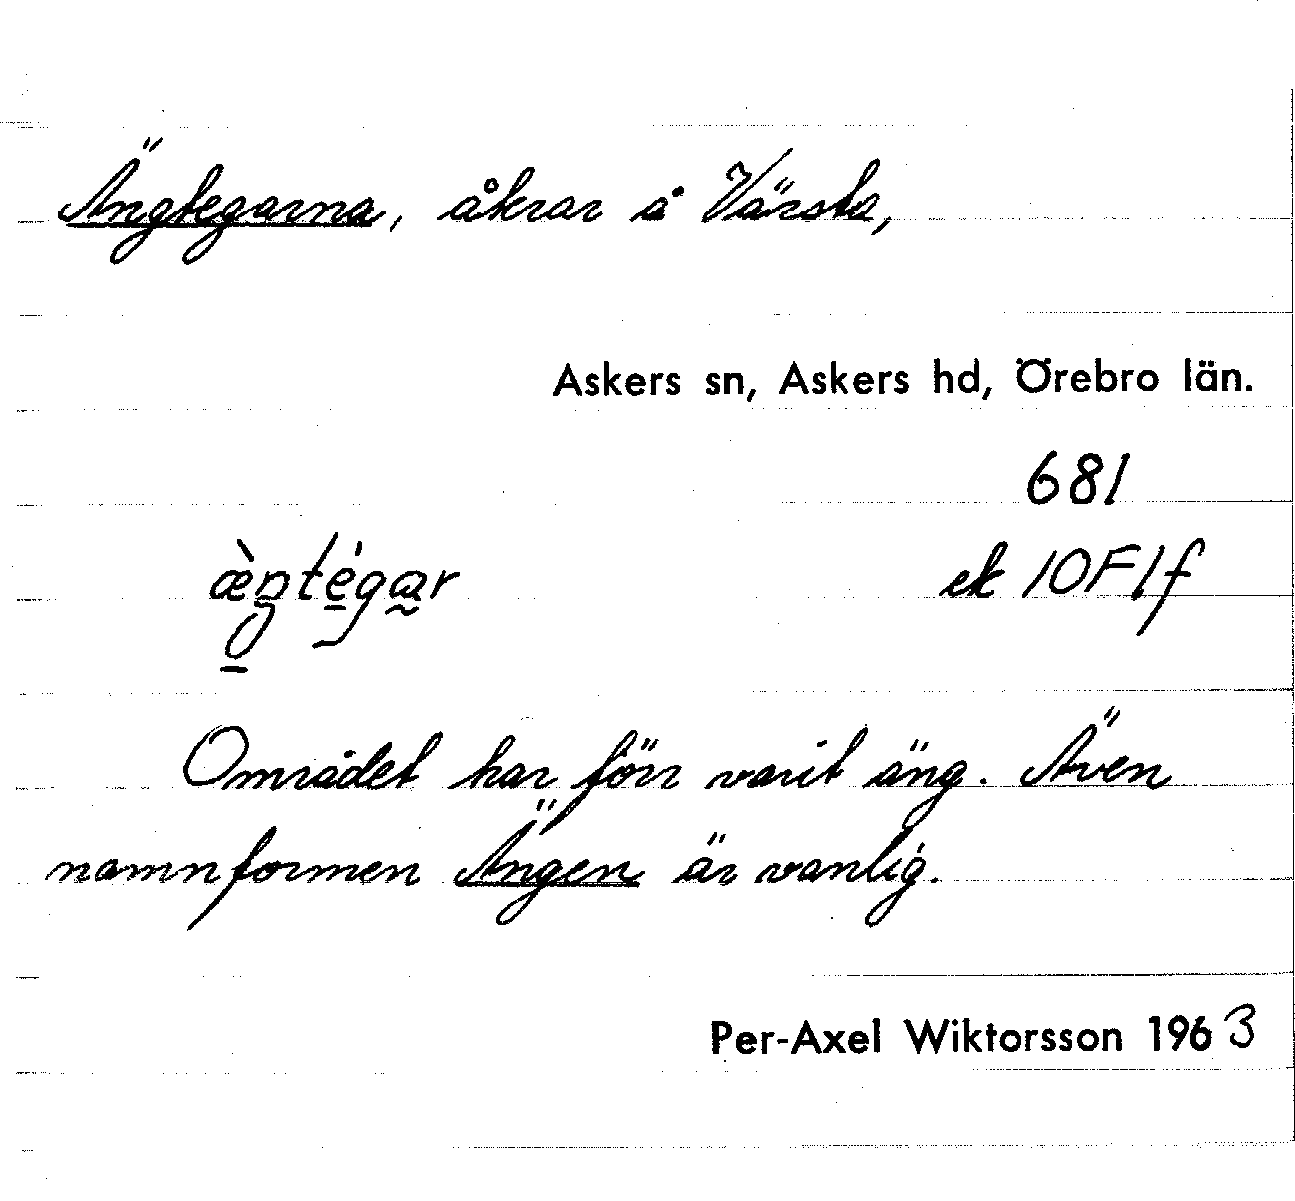 Ängtegarna, åkrar å Värsta,
Askers sn, Askers hd, Örebro län.
681
ὰŋtégar ek 10F1f
Området har förr varit äng. Även
namnformen Ängen är vanlig.
Per-Axel Wiktorsson 1963